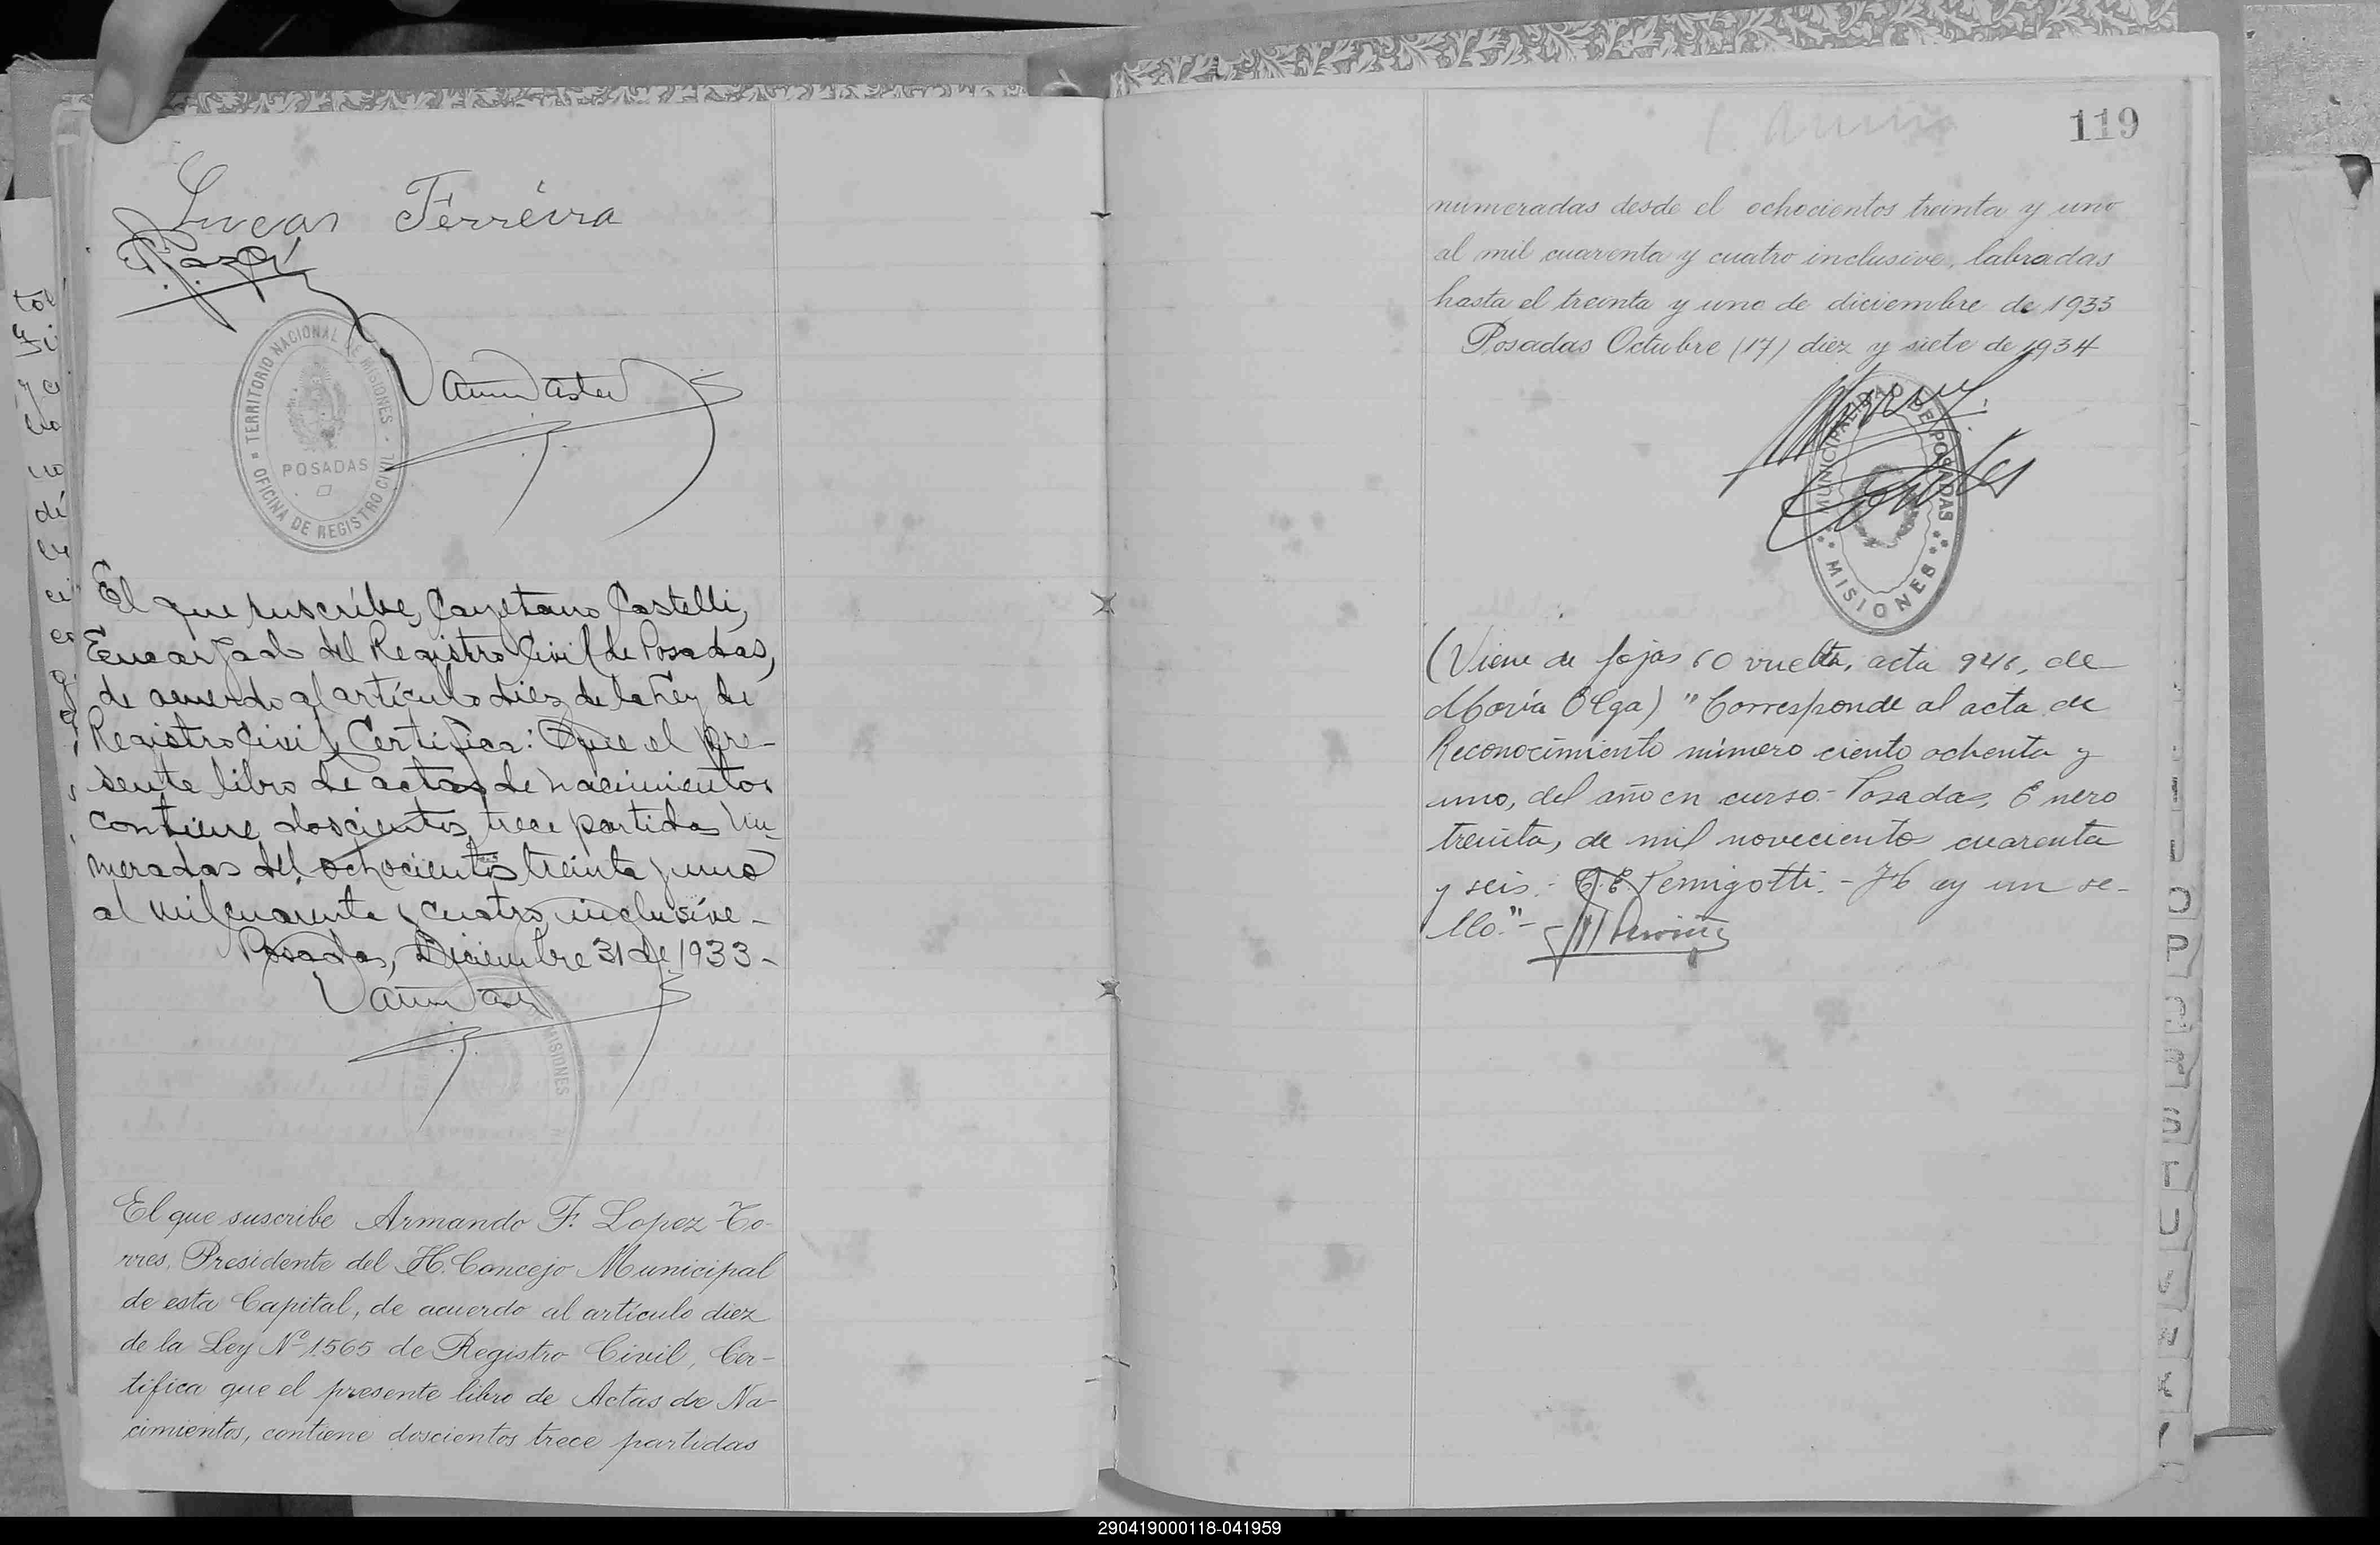 Lucas Ferreira
TERRITORIO NACIONAL DE MISIONES
POSADAS
OFICINA DE REGISTRO CIVIL
El que suscribe, Cayetano Castelli,
Encargado del Registro Civil de Posadas,
de acuerdo al artículo diez de la Ley de
Registro Civil, Certifica: Que el pre-
sente libro de actas de nacimientos
contiene doscientos trece partidas nu-
meradas del ochocientos treinta y uno
al mil cuarenta y cuatro inclusive-
Posadas, Diciembre 31 de 1933-
MISIONES
El que suscribe Armando F. Lopez To-
rres, Presidente del H. Concejo Municipal
de esta Capital, de acuerdo al artículo diez
de la Ley Nº 1565 de Registro Civil, Cer-
tifica que el presente libro de Actas de Na-
cimientos, contiene doscientos trece partidas
119
numeradas desde el ochocientos treinta y uno
al mil cuarenta y cuatro inclusive, labradas
hasta el treinta y uno de diciembre de 1933
Posadas Octubre (17) diez y siete de 1934
MUNICIPALIDAD DE POSADAS
MISIONES
(Viene de fojas 60 vuelta, acta 946, de
María Olga) "Corresponde al acta de
Reconocimiento número ciento ochenta y
uno, del año en curso.- Posadas, Enero
treinta, de mil noveciento cuarenta
y seis.- C. E. Pemigotti.- Hay un se-
llo."-
O
P
Q
R
S
T
U
290419000118-041959